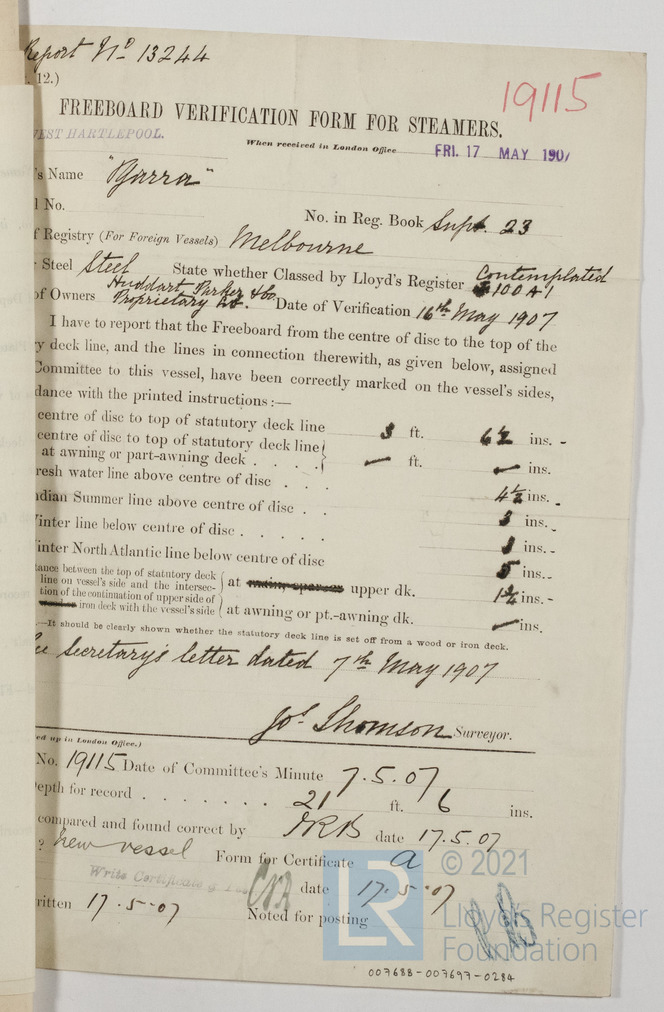 Report No 13244
. 12.)
19115
FREEBOARD VERIFICATION FORM FOR STEAMERS.
WEST HARTLEPOOL.
When received in London Office FRI. 17 MAY 1907
's Name "Yarra"
l No.
No. in Reg. Book Supt. 23
f Registry (For Foreign Vessels) Melbourne
Steel Steel State whether Classed by Lloyd's Register Contemplated 100 A1
of Owners Huddart Parker & Co. Proprietary Ld. Date of Verification 16th May 1907
I have to report that the Freeboard from the centre of disc to the top of the
y deck line, and the lines in connection therewith, as given below, assigned
Committee to this vessel, have been correctly marked on the vessel's sides,
dance with the printed instructions:—
centre of disc to top of statutory deck line 3 ft. 6½ ins.
centre of disc to top of statutory deck line
at awning or part-awning deck . . . . — ft. — ins.
resh water line above centre of disc . . . 4½ ins.
ndian Summer line above centre of disc . . 3 ins.
inter line below centre of disc . . . . . 3 ins.
inter North Atlantic line below centre of disc 5 ins.
tance between the top of statutory deck
line on vessel's side and the intersec-
tion of the continuation of upper side of
iron deck with the vessel's side
at upper dk. 1¼ ins.
at awning or pt.-awning dk. — ins.
.—It should be clearly shown whether the statutory deck line is set off from a wood or iron deck.
See Secretary's letter dated 7th May 1907
Jos. Thomson Surveyor.
ed up in London Office.)
No. 19115 Date of Committee's Minute 7.5.07
epth for record . . . . . . . 21 ft. 6 ins.
compared and found correct by date 17.5.07
? New vessel Form for Certificate A
Write Certificate
date 17.5.07
ritten 17.5.07 Noted for posting
© 2021
LR
Lloyd's Register
Foundation
007688-007697-0284